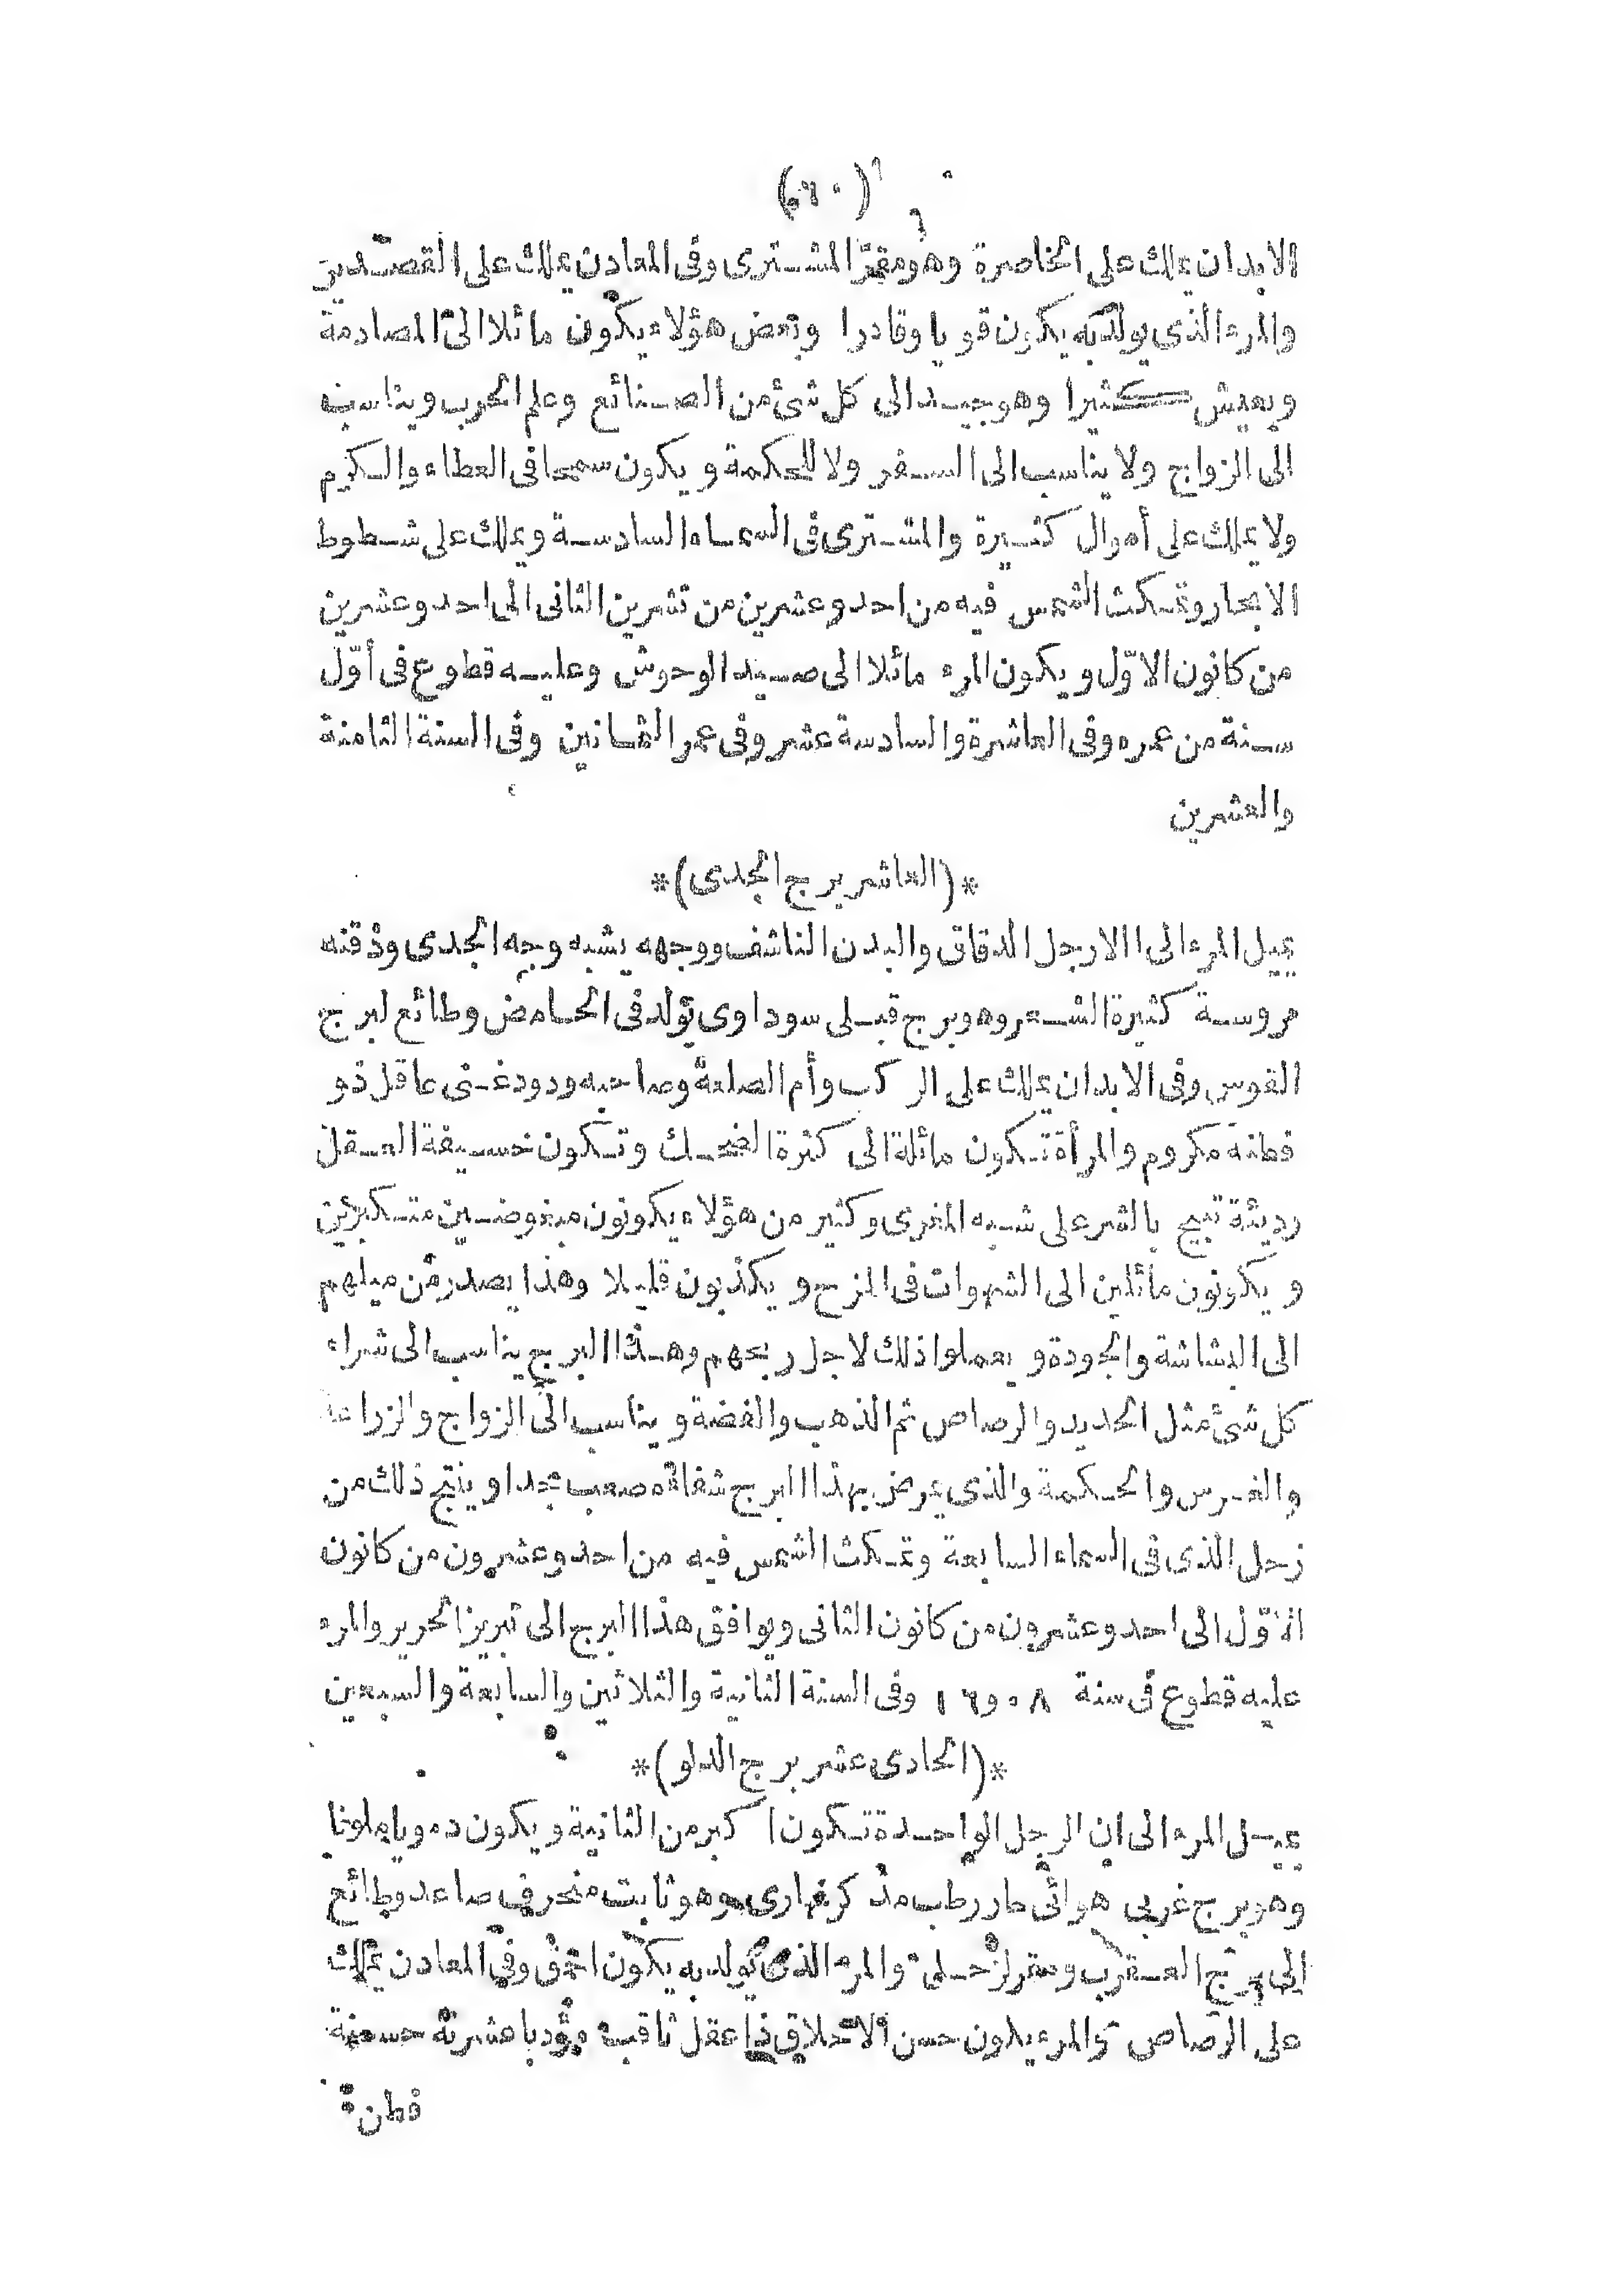 الابدان يملك على الخاصرة وهو مقرّ المشترى وفى المعادن يملك على القصدير
والمرء الذى يولد به يكون قويا وقادرا وبعض هؤلاء يكون مائلا الى المصادمة
ويعيش كثيرا وهو جيد الى كل شئ من الصنائع وعلم الحرب ويناسب
الى الزواج ولا يناسب الى السفر ولا للحكمة ويكون سمحا فى العطاء والكرم
ولا يملك على أموال كثيرة والمشترى فى السماء السادسة ويملك على شطوط
الابحار وتمكث الشمس فيه من احد وعشرين من تشرين الثانى الى احد وعشرين
من كانون الاوّل ويكون المرء مائلا الى صيد الوحوش وعليه قطوع فى أوّل
سنة من عمره وفى العاشرة والسادسة عشر وفى عمر الثمانين وفى السنة الثامنة
والعشرين
*(العاشر برج الجدى)*
يميل المرء الى الارجل الدقاق والبدن الناشف ووجهه يشبه وجه الجدى وذقنه
مروسة كثيرة الشعر وهو برج قبلى سوداوى يولد فى الحامض وطائع لبرج
القوس وفى الابدان يملك على الركب وأم الصلعة وصاحبه ودود غنى عاقل ذو
فطنة مكروم والمرأة تكون مائلة الى كثرة الضحك وتكون خسيفة العقل
رديئة تبيح بالشر على شبه المغرى وكثير من هؤلاء يكونون مبغوضين متكبرين
ويكونون مائلين الى الشهوات فى المزح ويكذبون قليلا وهذا يصدر من ميلهم
الى البشاشة والجودة ويعملوا ذلك لاجل ربحهم وهذا البرج يناسب الى شراء
كل شئ مثل الحديد والرصاص ثم الذهب والفضة ويناسب الى الزواج والزراعة
والغرس والحكمة والذى يمرض بهذا البرج شفاؤه صعب جدا وينتج ذلك من
زحل الذى فى السماء السابعة وتمكث الشمس فيه من احد وعشرون من كانون
الاوّل الى احد وعشرون من كانون الثانى ويوافق هذا البرج الى تبريز الحرير والمرء
عليه قطوع فى سنة ٨ و١٦ وفى السنة الثانية والثلاثين والسابعة والسبعين
*(الحادى عشر برج الدلو)*
يميل المرء الى ان الرجل الواحدة تكون اكبر من الثانية ويكون دمويا ملونا
وهو برج غربى هوائى حار رطب مذكر نهارى وهو ثابت منحرف صاعد وطائع
الى برج العقرب ومقر لزحل والمرء الذى يولد به يكون احمق وفى المعادن يملك
على الرصاص والمرء يكون حسن الاخلاق ذا عقل ثاقب مؤدبا عشرته حسنة
فطن